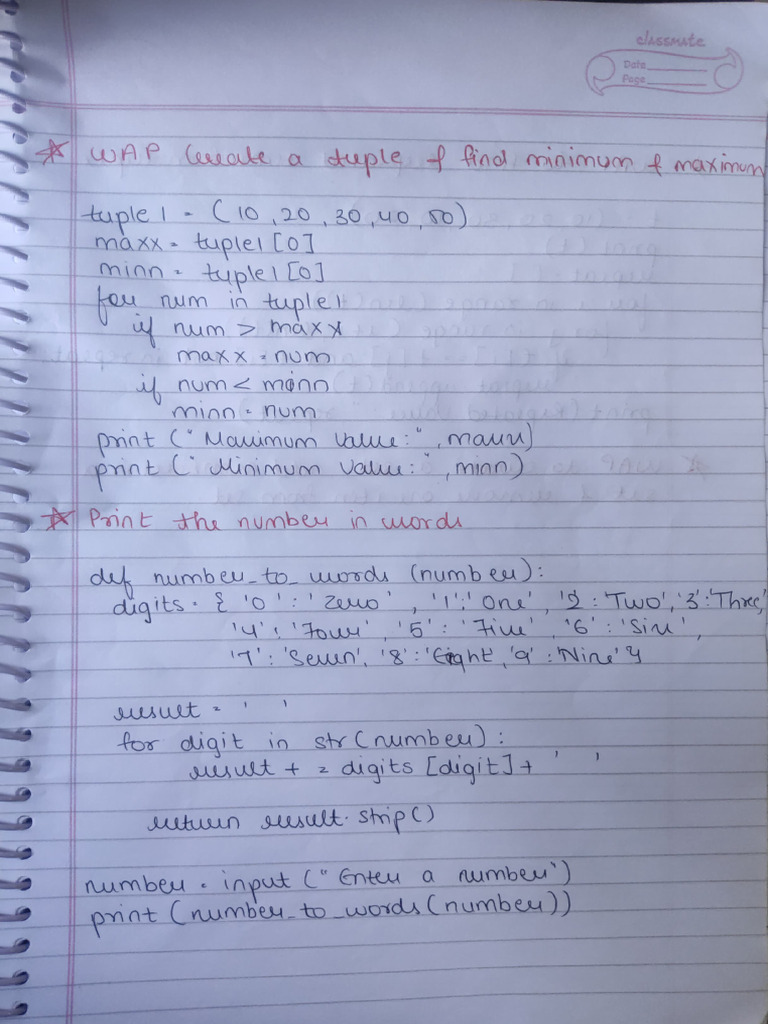 classmate
Date
Page
☆ WAP Create a tuple & find minimum & maximum
tuple1 = (10, 20, 30, 40, 50)
maxx = tuple1[0]
minn = tuple1[0]
for num in tuple1
if num > maxx
maxx = num
if num < minn
minn = num
print ("Maximum Value:", maxx)
print ("Minimum Value:", minn)
☆ Print the number in words
def number_to_words (number):
digits = { '0' : 'Zero', '1' : 'One', '2 : 'Two', '3' : 'Three,
'4' : 'Four', '5' : 'Five', '6' : 'Six',
'7' : 'Seven', '8' : 'Eight', '9' : 'Nine' }
result = ' '
for digit in str(number):
result + = digits [digit] + ' '
return result.strip()
number = input ("Enter a number")
print (number_to_words(number))